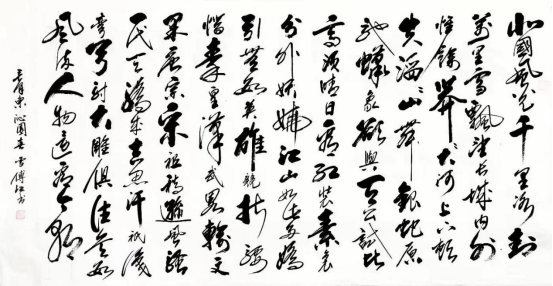 北國風光千里冰封
萬里雪飄望長城內外
惟餘莽莽大河上下頓
失滔滔山舞銀蛇原
馳蠟象欲與天公試比
高須晴日看紅裝素裹
分外妖嬈江山如此多嬌
引無數英雄競折腰
惜秦皇漢武略輸文
采唐宗宋祖稍遜風騷
一代天驕成吉思汗祇識
彎弓射大雕俱往矣數
風流人物還看今朝
毛澤東沁園春雪傅江書